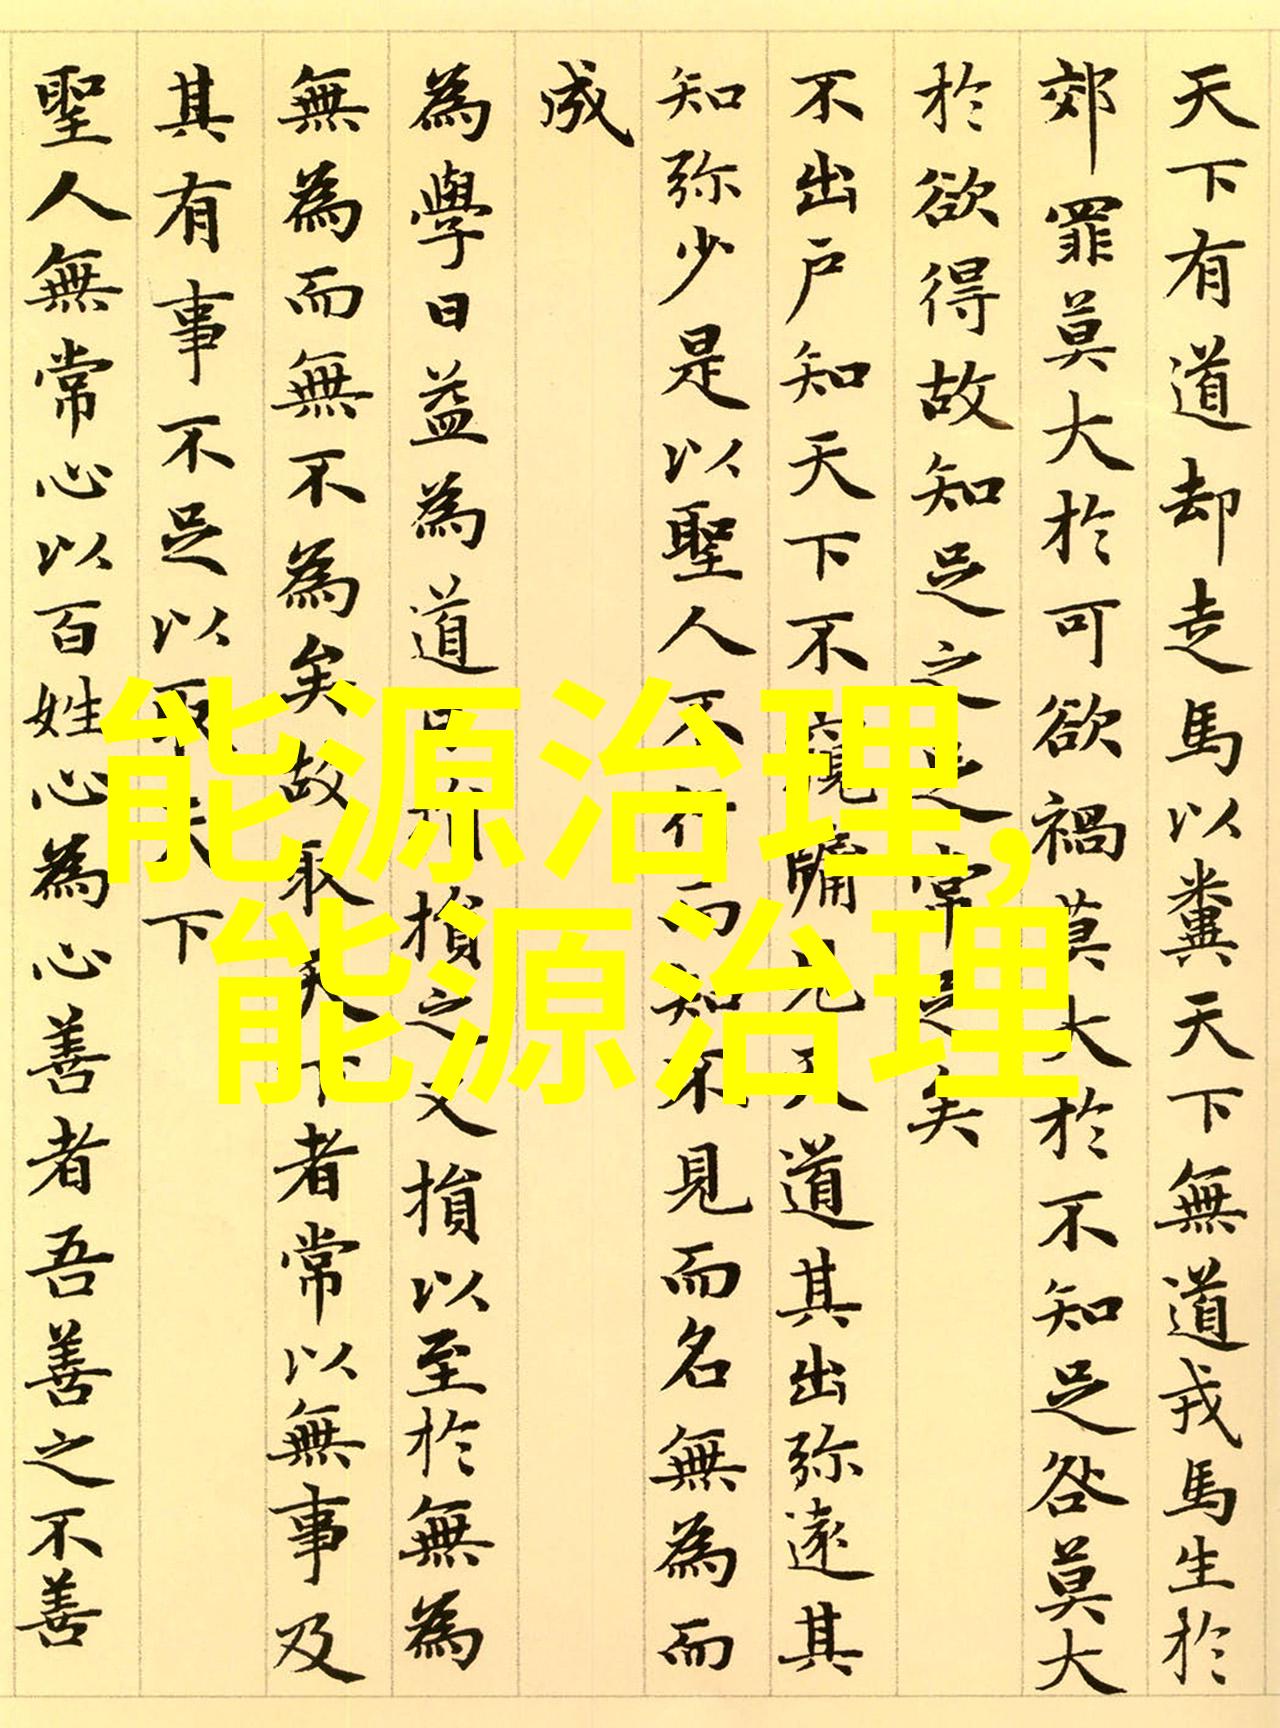 天下有道却走馬以糞天下無道戎馬生於
郊罪莫大於可欲禍莫大於不知足咎莫大
於欲得故知足之足常足矣
不出户知天下不窺牖見天道其出弥遠其
知弥少是以聖人不行而知不見而名無為而
成
為學日益為道日損損之又損以至於無為
無為而無不為矣故取天下者常以無事及
其有事不足以取天下
聖人無常心以百姓心為心善者吾善之不善
能源治理,
能源治理